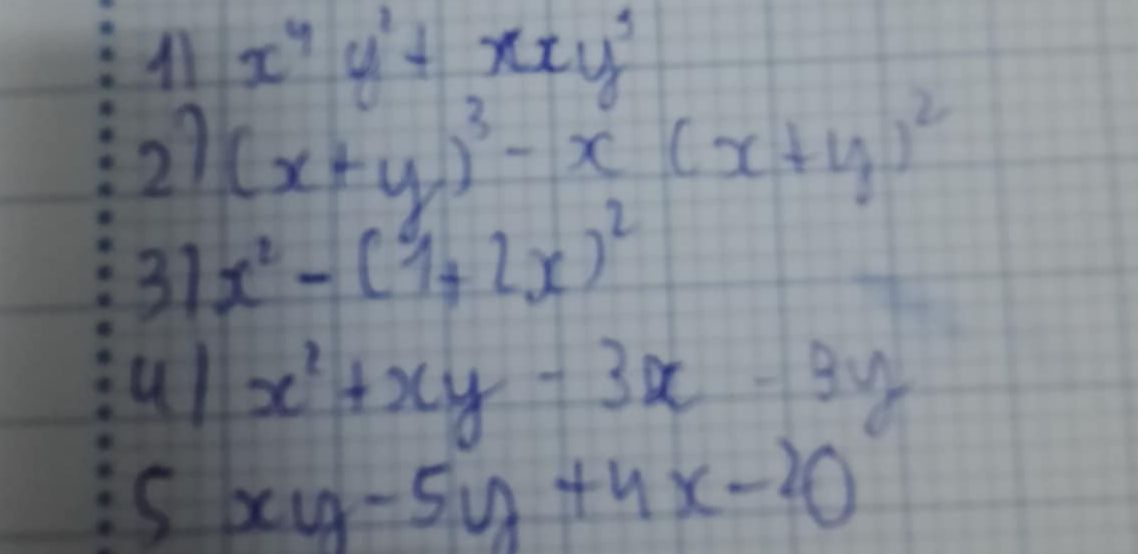 1) x⁴ y² + xxy³
2) (x+y)³ - x (x+y)²
3) x² - (1+2x)²
4) x² + xy - 3x - 3y
5 xy - 5y + 4x - 20